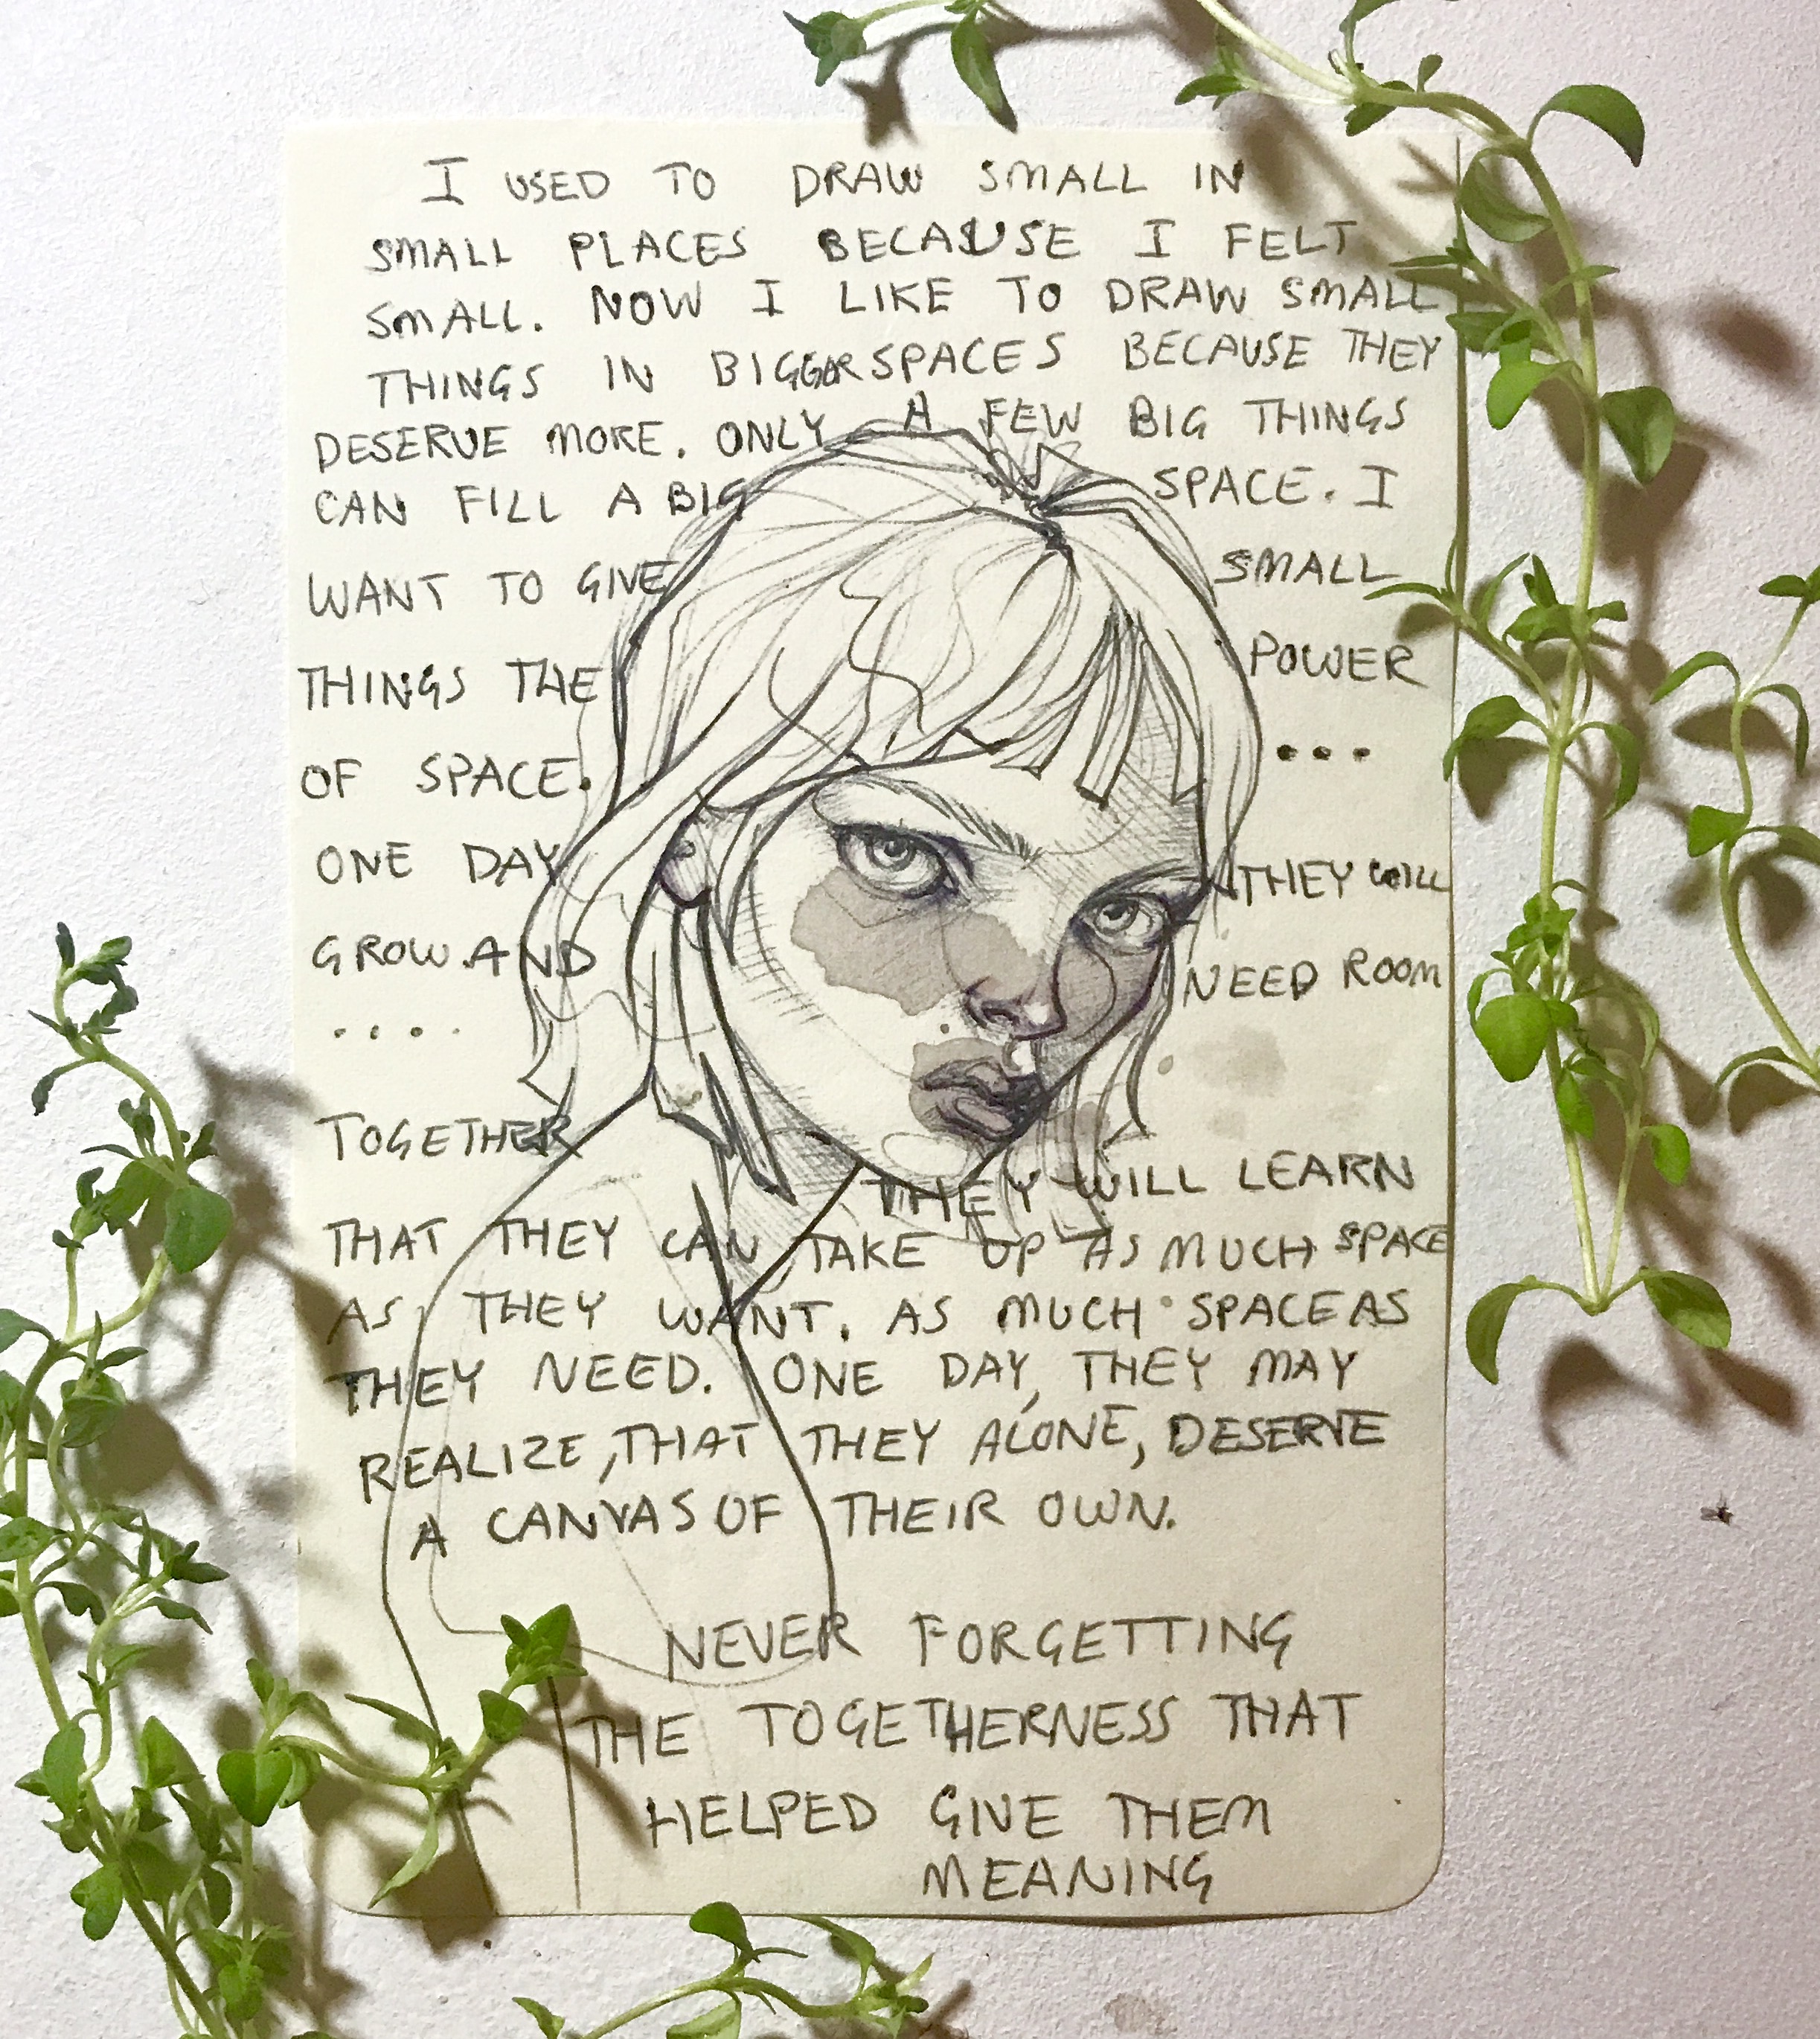 I USED TO DRAW SMALL IN
SMALL PLACES BECAUSE I FELT
SMALL. NOW I LIKE TO DRAW SMALL
THINGS IN BIGGER SPACES BECAUSE THEY
DESERVE MORE. ONLY A FEW BIG THINGS
CAN FILL A BIG SPACE. I
WANT TO GIVE SMALL
THINGS THE POWER
OF SPACE. ...
ONE DAY THEY WILL
GROW. AND NEED ROOM
....
TOGETHER THEY WILL LEARN
THAT THEY CAN TAKE UP AS MUCH SPACE
AS THEY WANT. AS MUCH SPACE AS
THEY NEED. ONE DAY, THEY MAY
REALIZE, THAT THEY ALONE, DESERVE
A CANVAS OF THEIR OWN.
NEVER FORGETTING
THE TOGETHERNESS THAT
HELPED GIVE THEM
MEANING